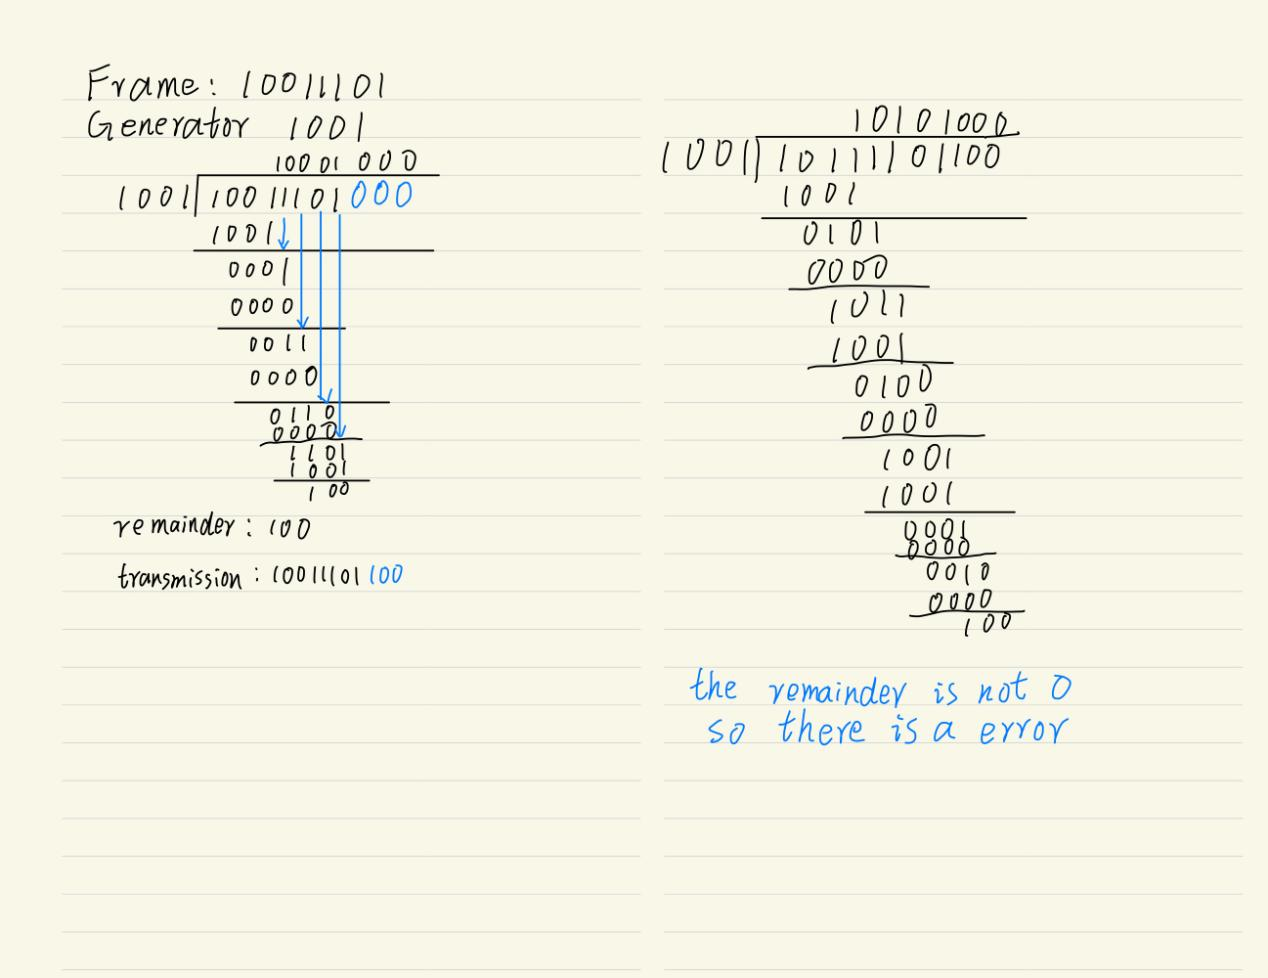 Frame: 10011101
Generator 1001
10001000
1001 10011101000
1001
0001
0000
0011
0000
0110
0000
1101
1001
100
remainder: 100
transmission: 10011101100
10101000
1001 10111101100
1001
0101
0000
1011
1001
0100
0000
1001
1001
0001
0000
0010
0000
100
the remainder is not 0
so there is a error